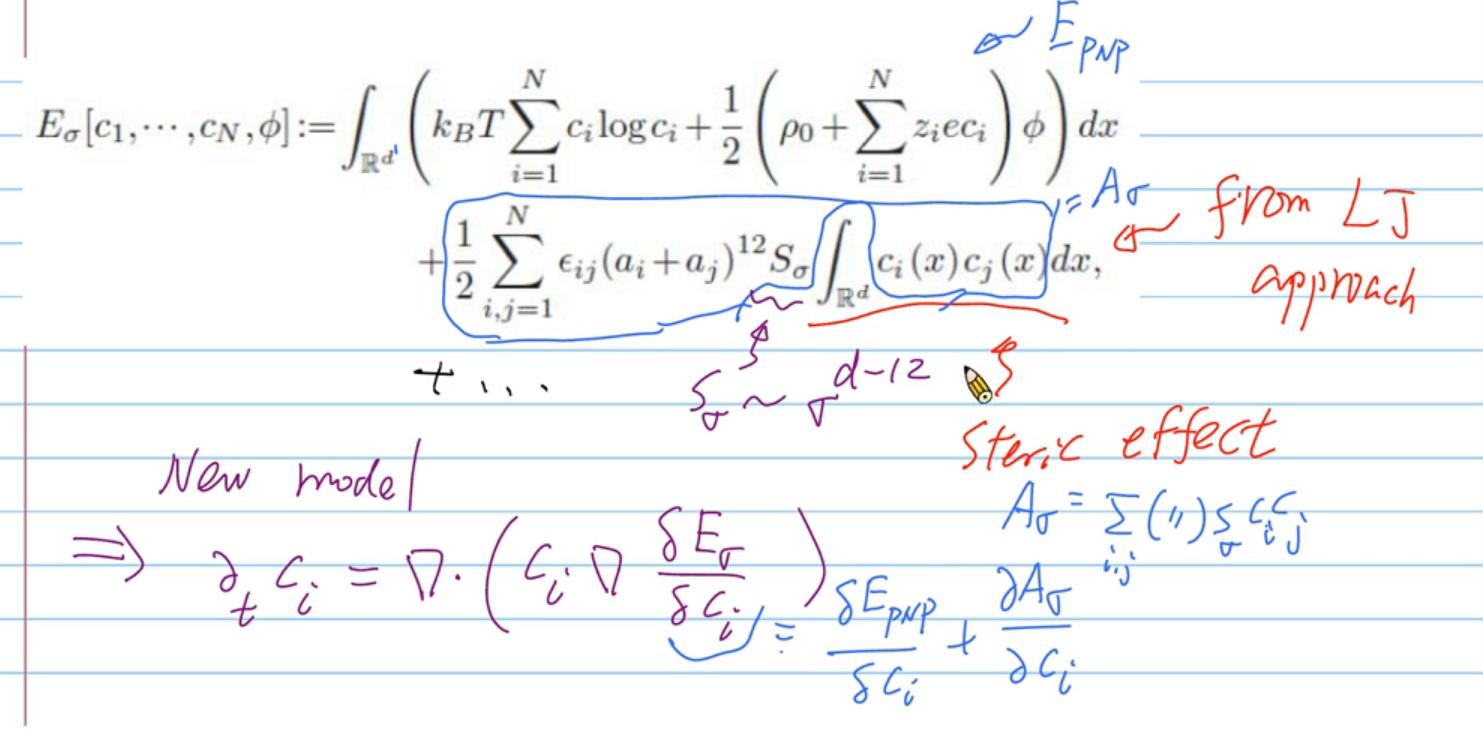 ← E_PNP
E_σ[c_1, ⋯, c_N, ϕ] := ∫_{ℝ^d} ( k_B T ∑_{i=1}^{N} c_i log c_i + 1/2 ( ρ_0 + ∑_{i=1}^{N} z_i e c_i ) ϕ ) dx
+ 1/2 ∑_{i,j=1}^{N} ϵ_{ij} (a_i + a_j)^{12} S_σ ∫_{ℝ^d} c_i(x) c_j(x) dx,
= A_σ
← from LJ
approach
+ ...
S_σ ~ σ^{d-12}
steric effect
New model
A_σ = ∑_{i,j} (") S_σ c_i c_j
⇒ ∂_t c_i = ∇·( c_i ∇ δE_σ/δc_i )
= δE_PNP/δc_i + ∂A_σ/∂c_i